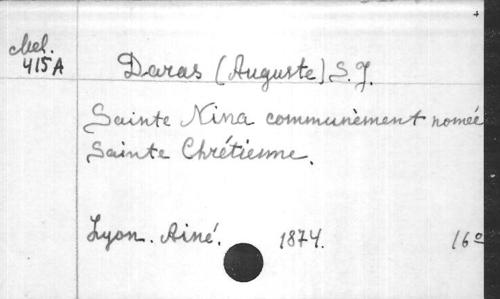 Mel.
415A
Daras (Auguste) S. J.
Sainte Nina communèment nomée
Sainte Chrétienne.
Lyon. Ainé. 1874. 16º